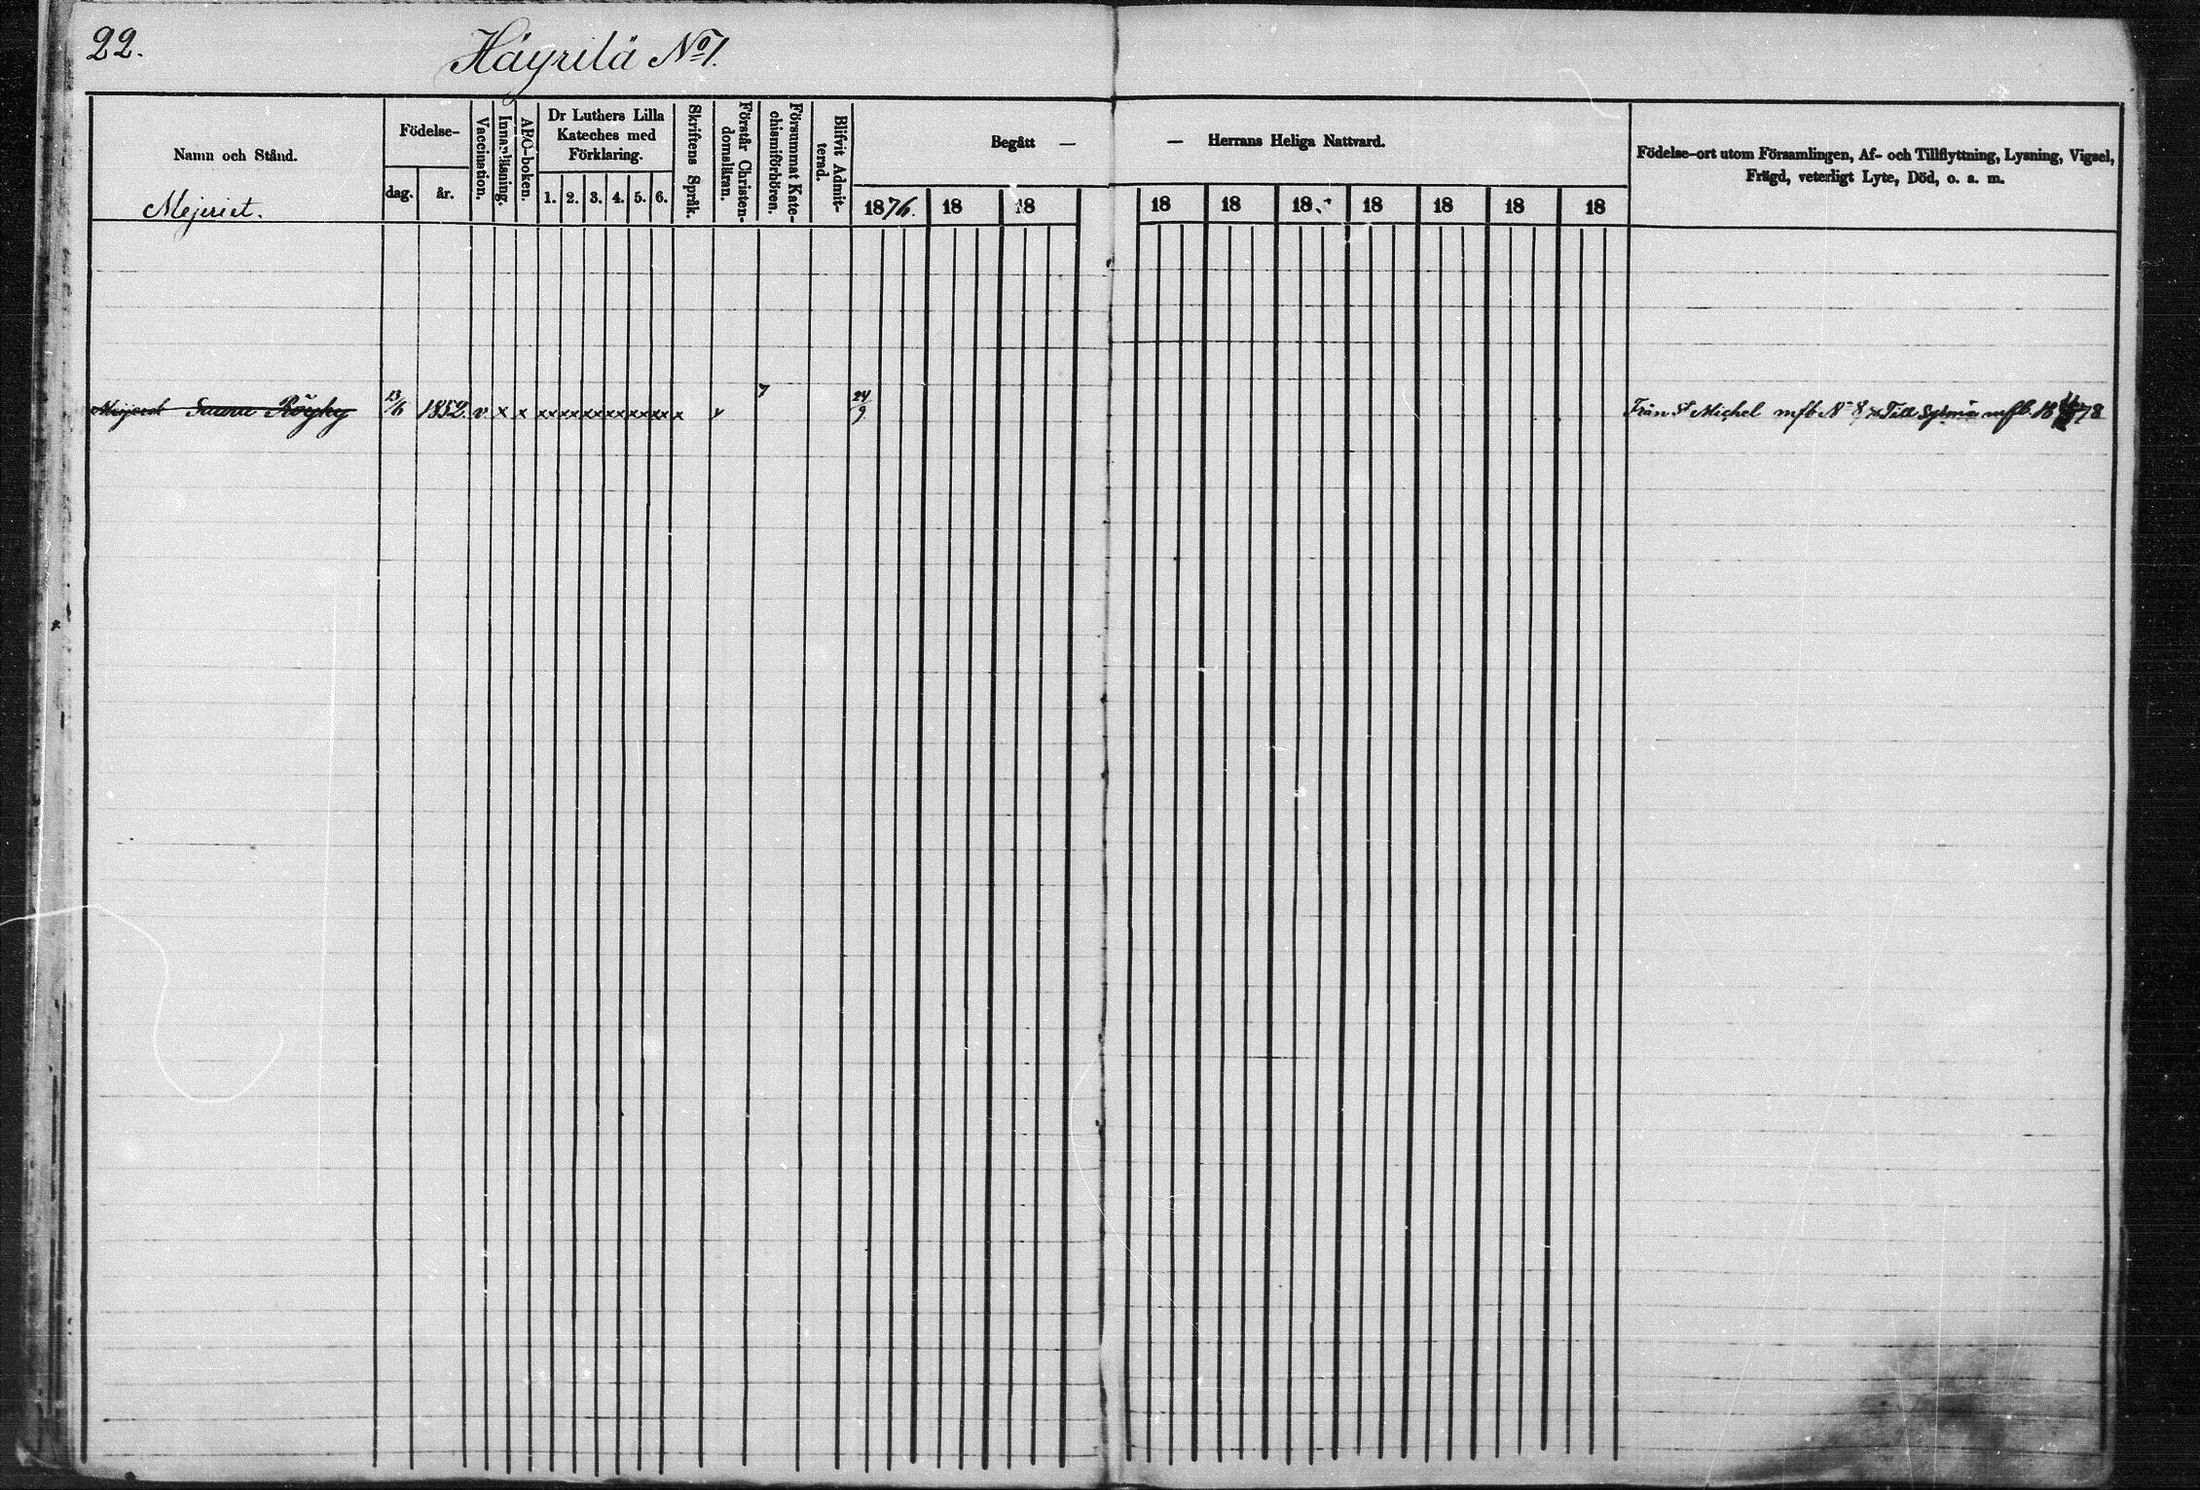 22.
Häyrilä No 1.
Namn och Stånd.
Mejeriet.
Födelse-
dag.
år.
Vaccination.
Innanläsning.
ABC-boken.
Dr Luthers Lilla
Kateches med
Förklaring.
1. 2. 3. 4. 5. 6.
Skriftens Språk.
Förstår Christen-
domsläran.
Försummat Kate-
chismiförhören.
Blifvit Admit-
terad.
Begått —
— Herrans Heliga Nattvard.
1876. 18 18 18 18 18 18 18 18 18
Födelse-ort utom Församlingen, Af- och Tillflyttning, Lysning, Vigsel,
Frägd, veterligt Lyte, Död, o. a. m.
13/6 1852 v x x x x x x x x x x x x x x x v 7 24/9 Från St Michel mfb No 8, Till mfb. 78